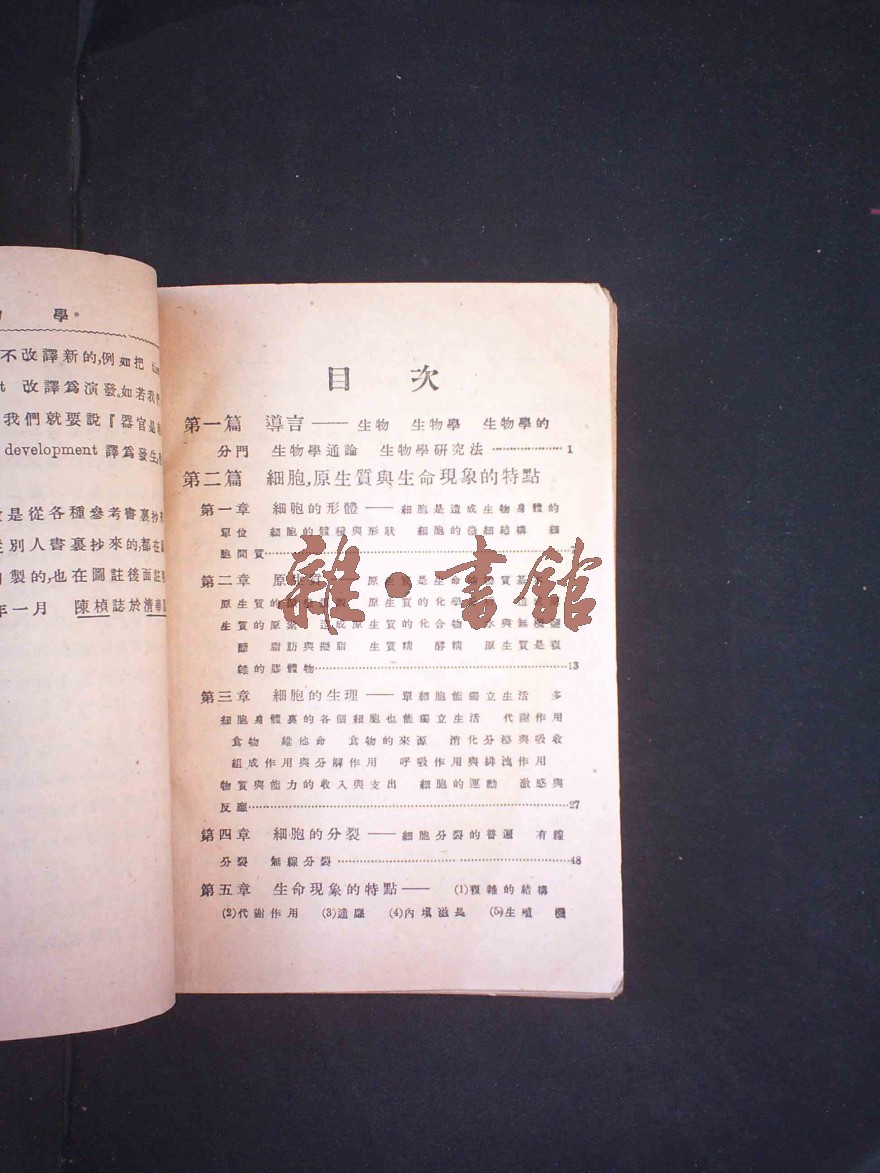 學
不改譯新的,例如把
t 改譯爲演發,如若我們
我們就要說『器官是
development 譯爲發生,
是從各種參考書裏抄
別人書裏抄來的,都在
製的,也在圖註後面註
年一月 陳楨誌於清華
目次
第一篇 導言——生物 生物學 生物學的
分門 生物學通論 生物學研究法…………1
第二篇 細胞,原生質與生命現象的特點
第一章 細胞的形體——細胞是造成生物身體的
單位 細胞的體積與形狀 細胞的微細結構 細
胞間質
第二章 原生質 原生質是生命的物質基
原生質的 原生質的化學
生質的原素 造成原生質的化合物 水與無機鹽
醣 脂肪與擬脂 生質精 酵精 原生質是複
雜的膠體物…………13
第三章 細胞的生理——單細胞能獨立生活 多
細胞身體裏的各個細胞也能獨立生活 代謝作用
食物 維他命 食物的來源 消化分泌與吸收
組成作用與分解作用 呼吸作用與排洩作用
物質與能力的收入與支出 細胞的運動 激感與
反應…………27
第四章 細胞的分裂——細胞分裂的普遍 有線
分裂 無線分裂…………48
第五章 生命現象的特點——(1)複雜的結構
(2)代謝作用 (3)適應 (4)內填滋長 (5)生殖 機
雜·書館